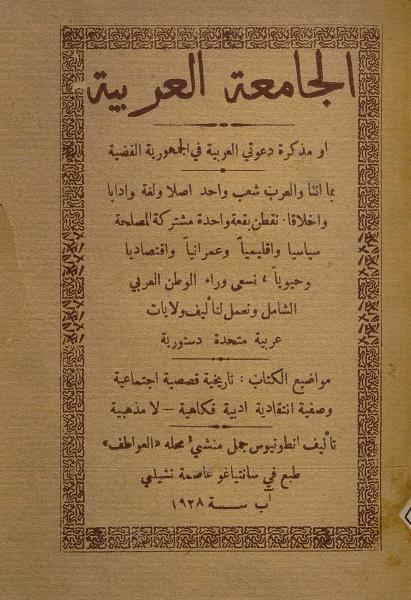 الجامعة العربية
او مذكرة دعوتي العربية في الجمهورية الفضية
بما اننا والعرب شعب واحد اصلا ولغة وادابا
واخلاقا. نقطن بقعة واحدة مشتركة المصلحة
سياسيا واقليمياً وعمرانياً واقتصاديا
وحيوياً، نسعى وراء الوطن العربي
الشامل ونعمل لتأليف ولايات
عربية متحدة دستورية
مواضيع الكتاب : تاريخية قصصية اجتماعية
وصفية انتقادية ادبية فكاهية – لا مذهبية
تأليف انطونيوس جمل منشئ محله «العواطف»
طبع في سانتياغو عاصمة تشيلي
آب سنة ١٩٢٨